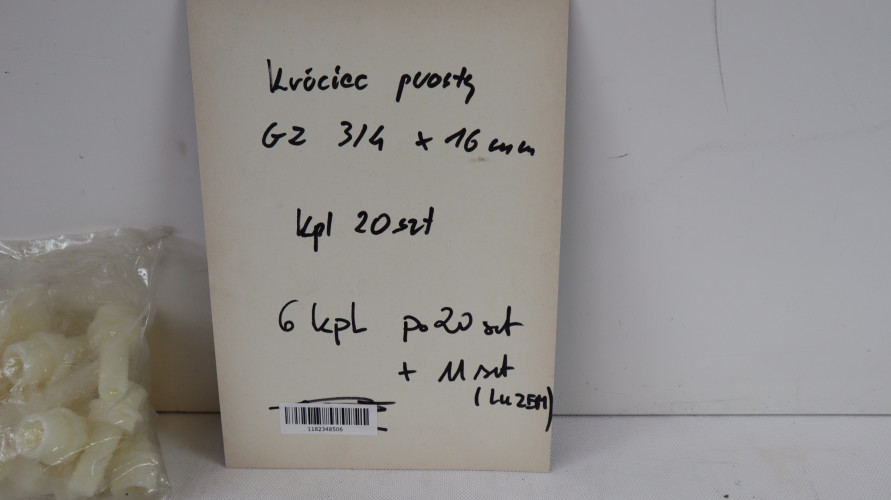 Króciec prosty
GZ 3/4 x 16 mm
kpl 20 szt
6 kpl po 20 szt
+ 11 szt
(LUZEM)
1182348506